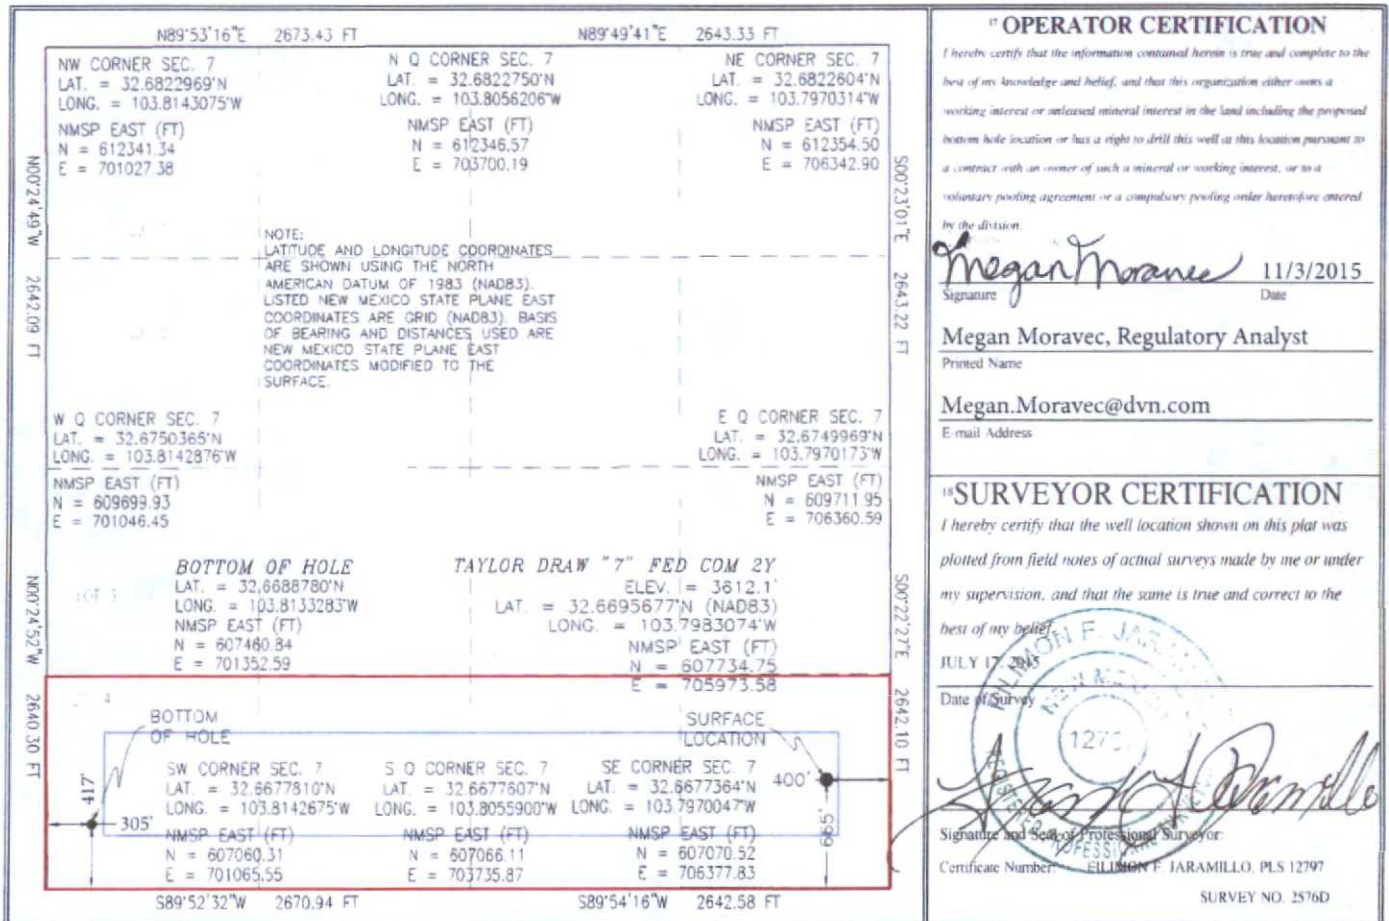 N89°53'16"E 2673.43 FT
N89°49'41"E 2643.33 FT
NW CORNER SEC. 7
LAT. = 32.6822969°N
LONG. = 103.8143075°W
NMSP EAST (FT)
N = 612341.34
E = 701027.38
N Q CORNER SEC. 7
LAT. = 32.6822750°N
LONG. = 103.8056206°W
NMSP EAST (FT)
N = 612346.57
E = 703700.19
NE CORNER SEC. 7
LAT. = 32.6822604°N
LONG. = 103.7970314°W
NMSP EAST (FT)
N = 612354.50
E = 706342.90
N00°24'49"W 2642.09 FT
S00°23'01"E 2643.22 FT
NOTE:
LATITUDE AND LONGITUDE COORDINATES
ARE SHOWN USING THE NORTH
AMERICAN DATUM OF 1983 (NAD83).
LISTED NEW MEXICO STATE PLANE EAST
COORDINATES ARE GRID (NAD83). BASIS
OF BEARING AND DISTANCES USED ARE
NEW MEXICO STATE PLANE EAST
COORDINATES MODIFIED TO THE
SURFACE.
W Q CORNER SEC. 7
LAT. = 32.6750365°N
LONG. = 103.8142876°W
NMSP EAST (FT)
N = 609699.93
E = 701046.45
E Q CORNER SEC. 7
LAT. = 32.6749969°N
LONG. = 103.7970173°W
NMSP EAST (FT)
N = 609711.95
E = 706360.59
N00°24'52"W 2640.30 FT
S00°22'27"E 2642.10 FT
LOT 3
BOTTOM OF HOLE
LAT. = 32.6688780°N
LONG. = 103.8133283°W
NMSP EAST (FT)
N = 607460.84
E = 701352.59
TAYLOR DRAW "7" FED COM 2Y
ELEV. = 3612.1'
LAT. = 32.6695677°N (NAD83)
LONG. = 103.7983074°W
NMSP EAST (FT)
N = 607734.75
E = 705973.58
4
BOTTOM
OF HOLE
SURFACE
LOCATION
417'
305'
400'
665'
SW CORNER SEC. 7
LAT. = 32.6677810°N
LONG. = 103.8142675°W
NMSP EAST (FT)
N = 607060.31
E = 701065.55
S Q CORNER SEC. 7
LAT. = 32.6677607°N
LONG. = 103.8055900°W
NMSP EAST (FT)
N = 607066.11
E = 703735.87
SE CORNER SEC. 7
LAT. = 32.6677364°N
LONG. = 103.7970047°W
NMSP EAST (FT)
N = 607070.52
E = 706377.83
S89°52'32"W 2670.94 FT
S89°54'16"W 2642.58 FT
17 OPERATOR CERTIFICATION
I hereby certify that the information contained herein is true and complete to the
best of my knowledge and belief, and that this organization either owns a
working interest or unleased mineral interest in the land including the proposed
bottom hole location or has a right to drill this well at this location pursuant to
a contract with an owner of such a mineral or working interest, or to a
voluntary pooling agreement or a compulsory pooling order heretofore entered
by the division.
Megan Moravec 11/3/2015
Signature Date
Megan Moravec, Regulatory Analyst
Printed Name
Megan.Moravec@dvn.com
E-mail Address
18 SURVEYOR CERTIFICATION
I hereby certify that the well location shown on this plat was
plotted from field notes of actual surveys made by me or under
my supervision, and that the same is true and correct to the
best of my belief.
JULY 17, 2015
Date of Survey
FILIMON F. JARAMILLO
NEW MEXICO
12797
Signature and Seal of Professional Surveyor:
Certificate Number: FILIMON F. JARAMILLO, PLS 12797
SURVEY NO. 2576D